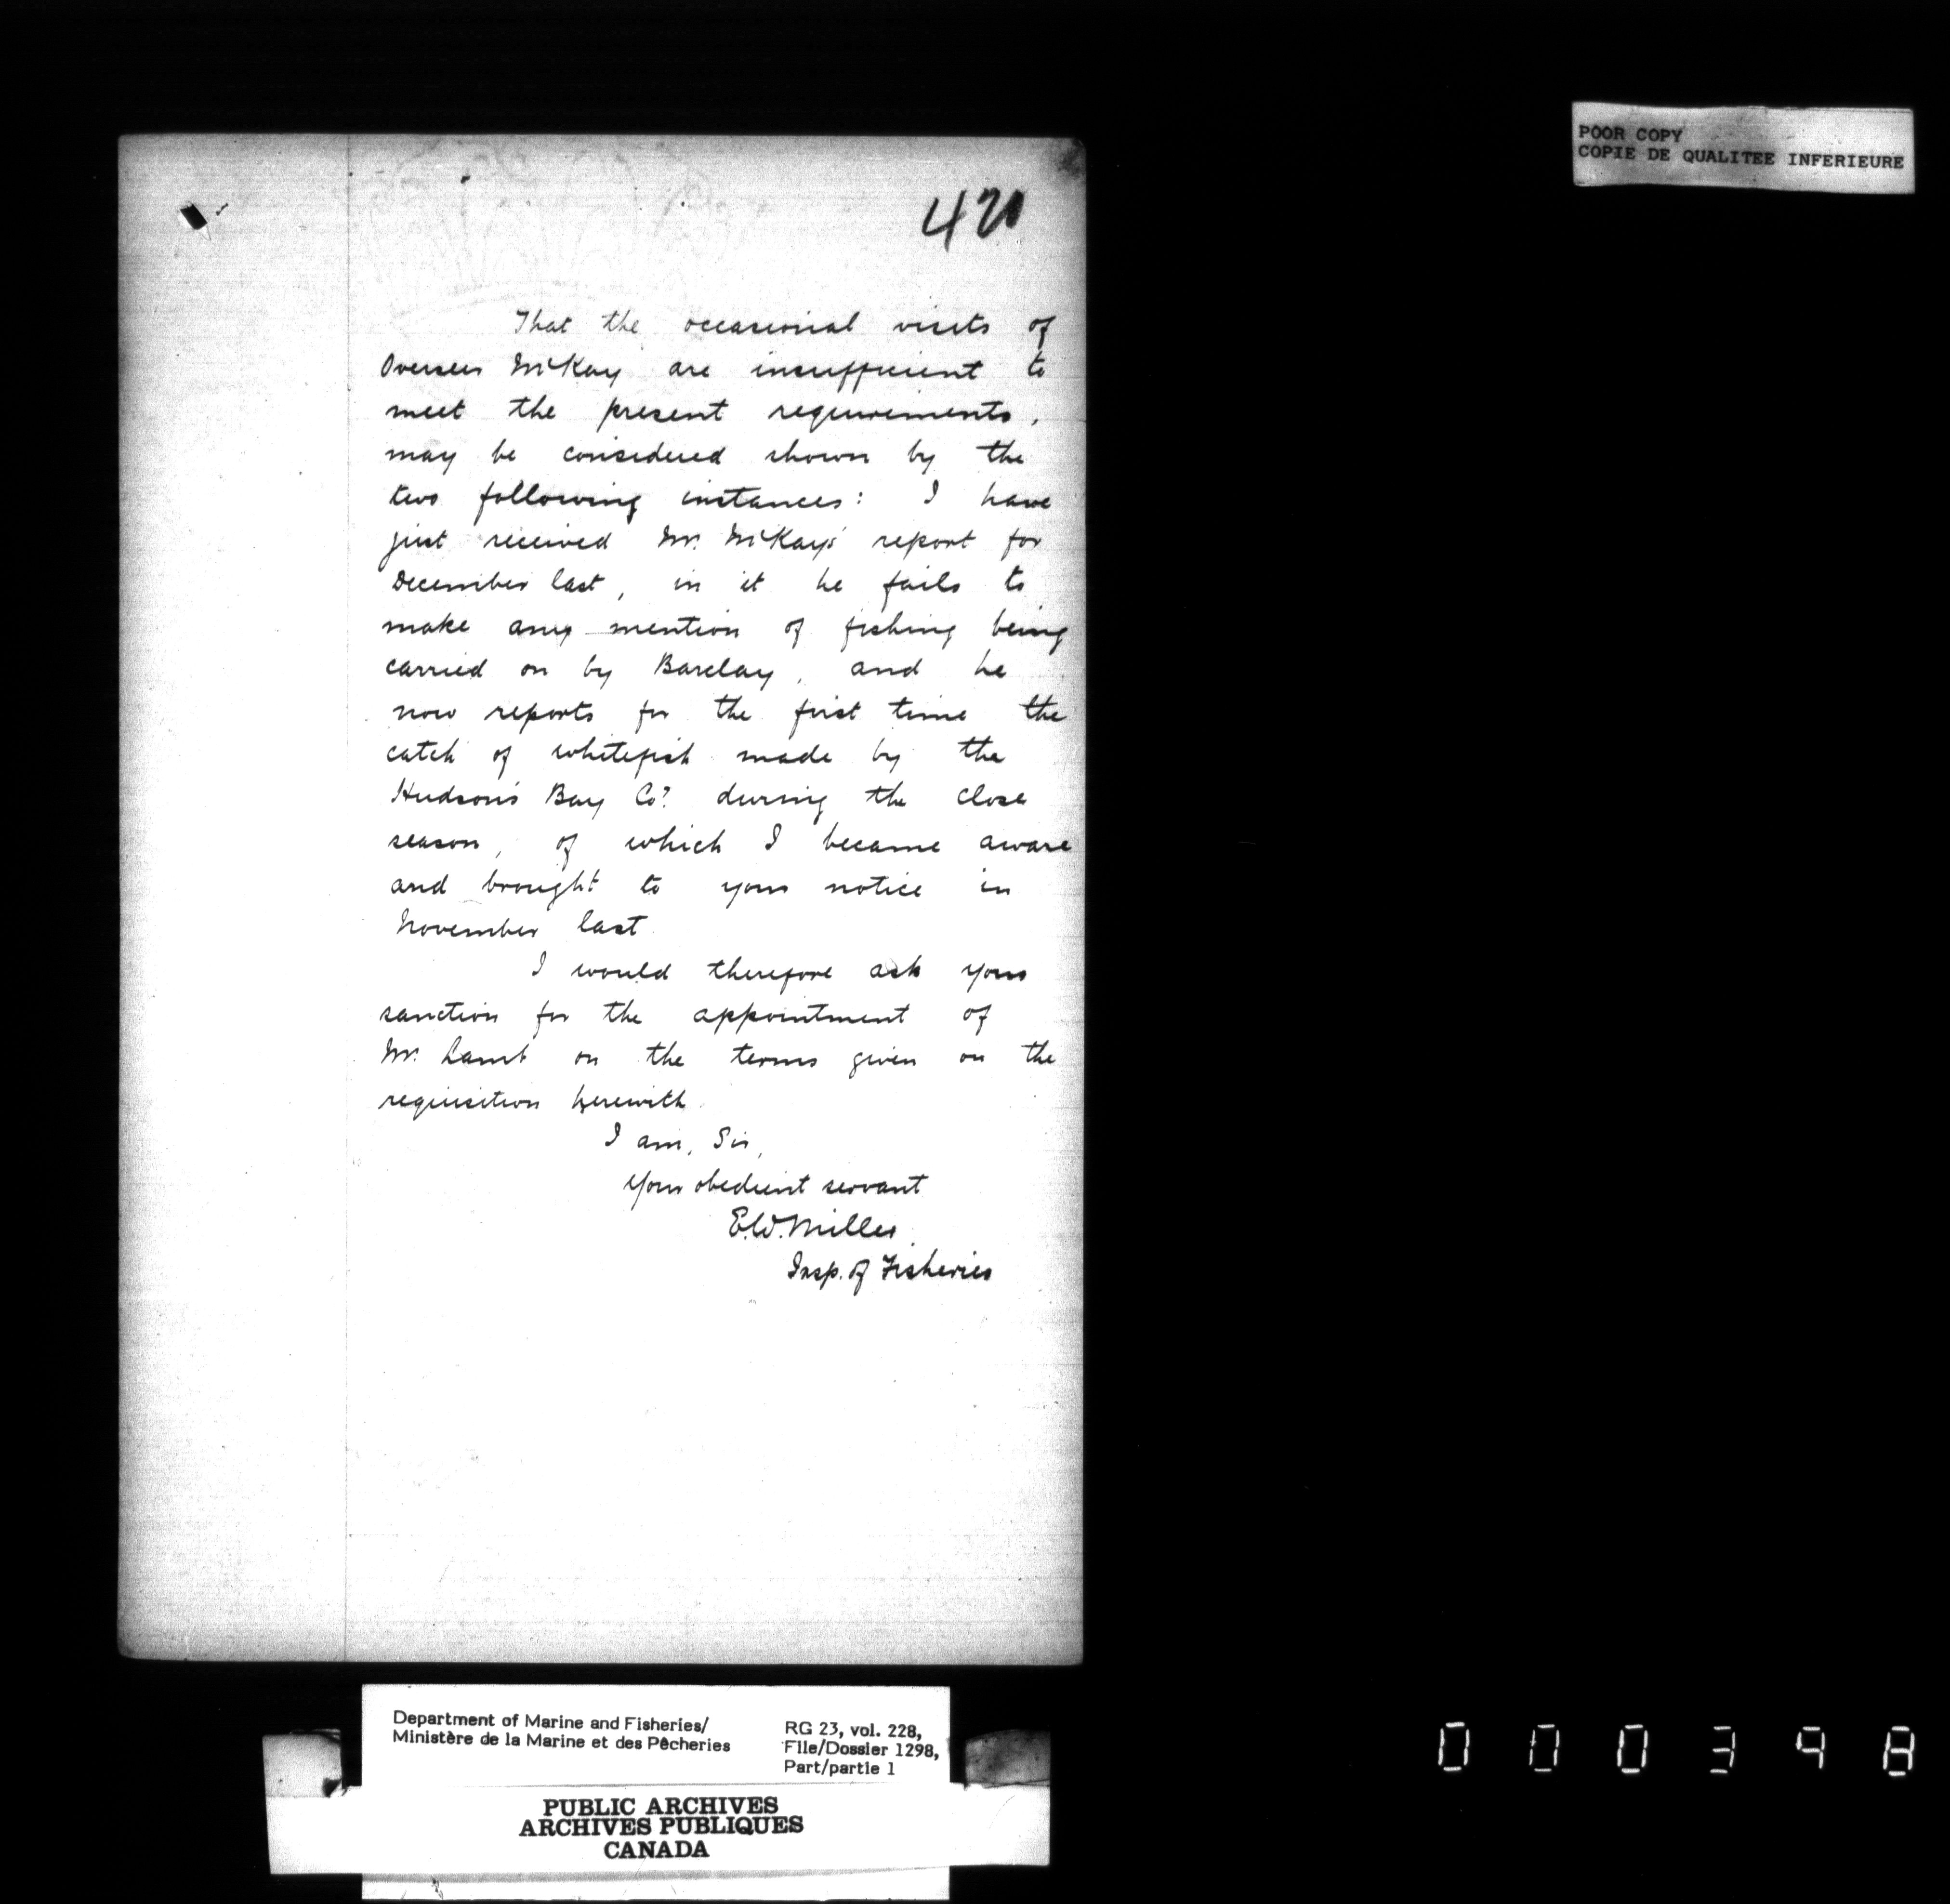 POOR COPY
COPIE DE QUALITEE INFERIEURE
That the occasional visits of
Overseer McKay are insufficient to
meet the present requirements,
may be considered shown by the
two following instances: I have
just received Mr. McKay's report for
December last, in it he fails to
make any mention of fishing being
carried on by Barclay, and he
now reports for the first time the
catch of whitefish made by the
Hudson's Bay Co. during the close
season, of which I became aware
and brought to your notice in
November last
I would therefore ask your
sanction for the appointment of
Mr. Lamb on the terms given on the
requisition herewith
I am, Sir,
Your obedient servant
E.W. Miller
Insp. of Fisheries
Department of Marine and Fisheries/
Ministère de la Marine et des Pêcheries
RG 23, vol. 228,
File/Dossier 1298,
Part/partie 1
PUBLIC ARCHIVES
ARCHIVES PUBLIQUES
CANADA
000398